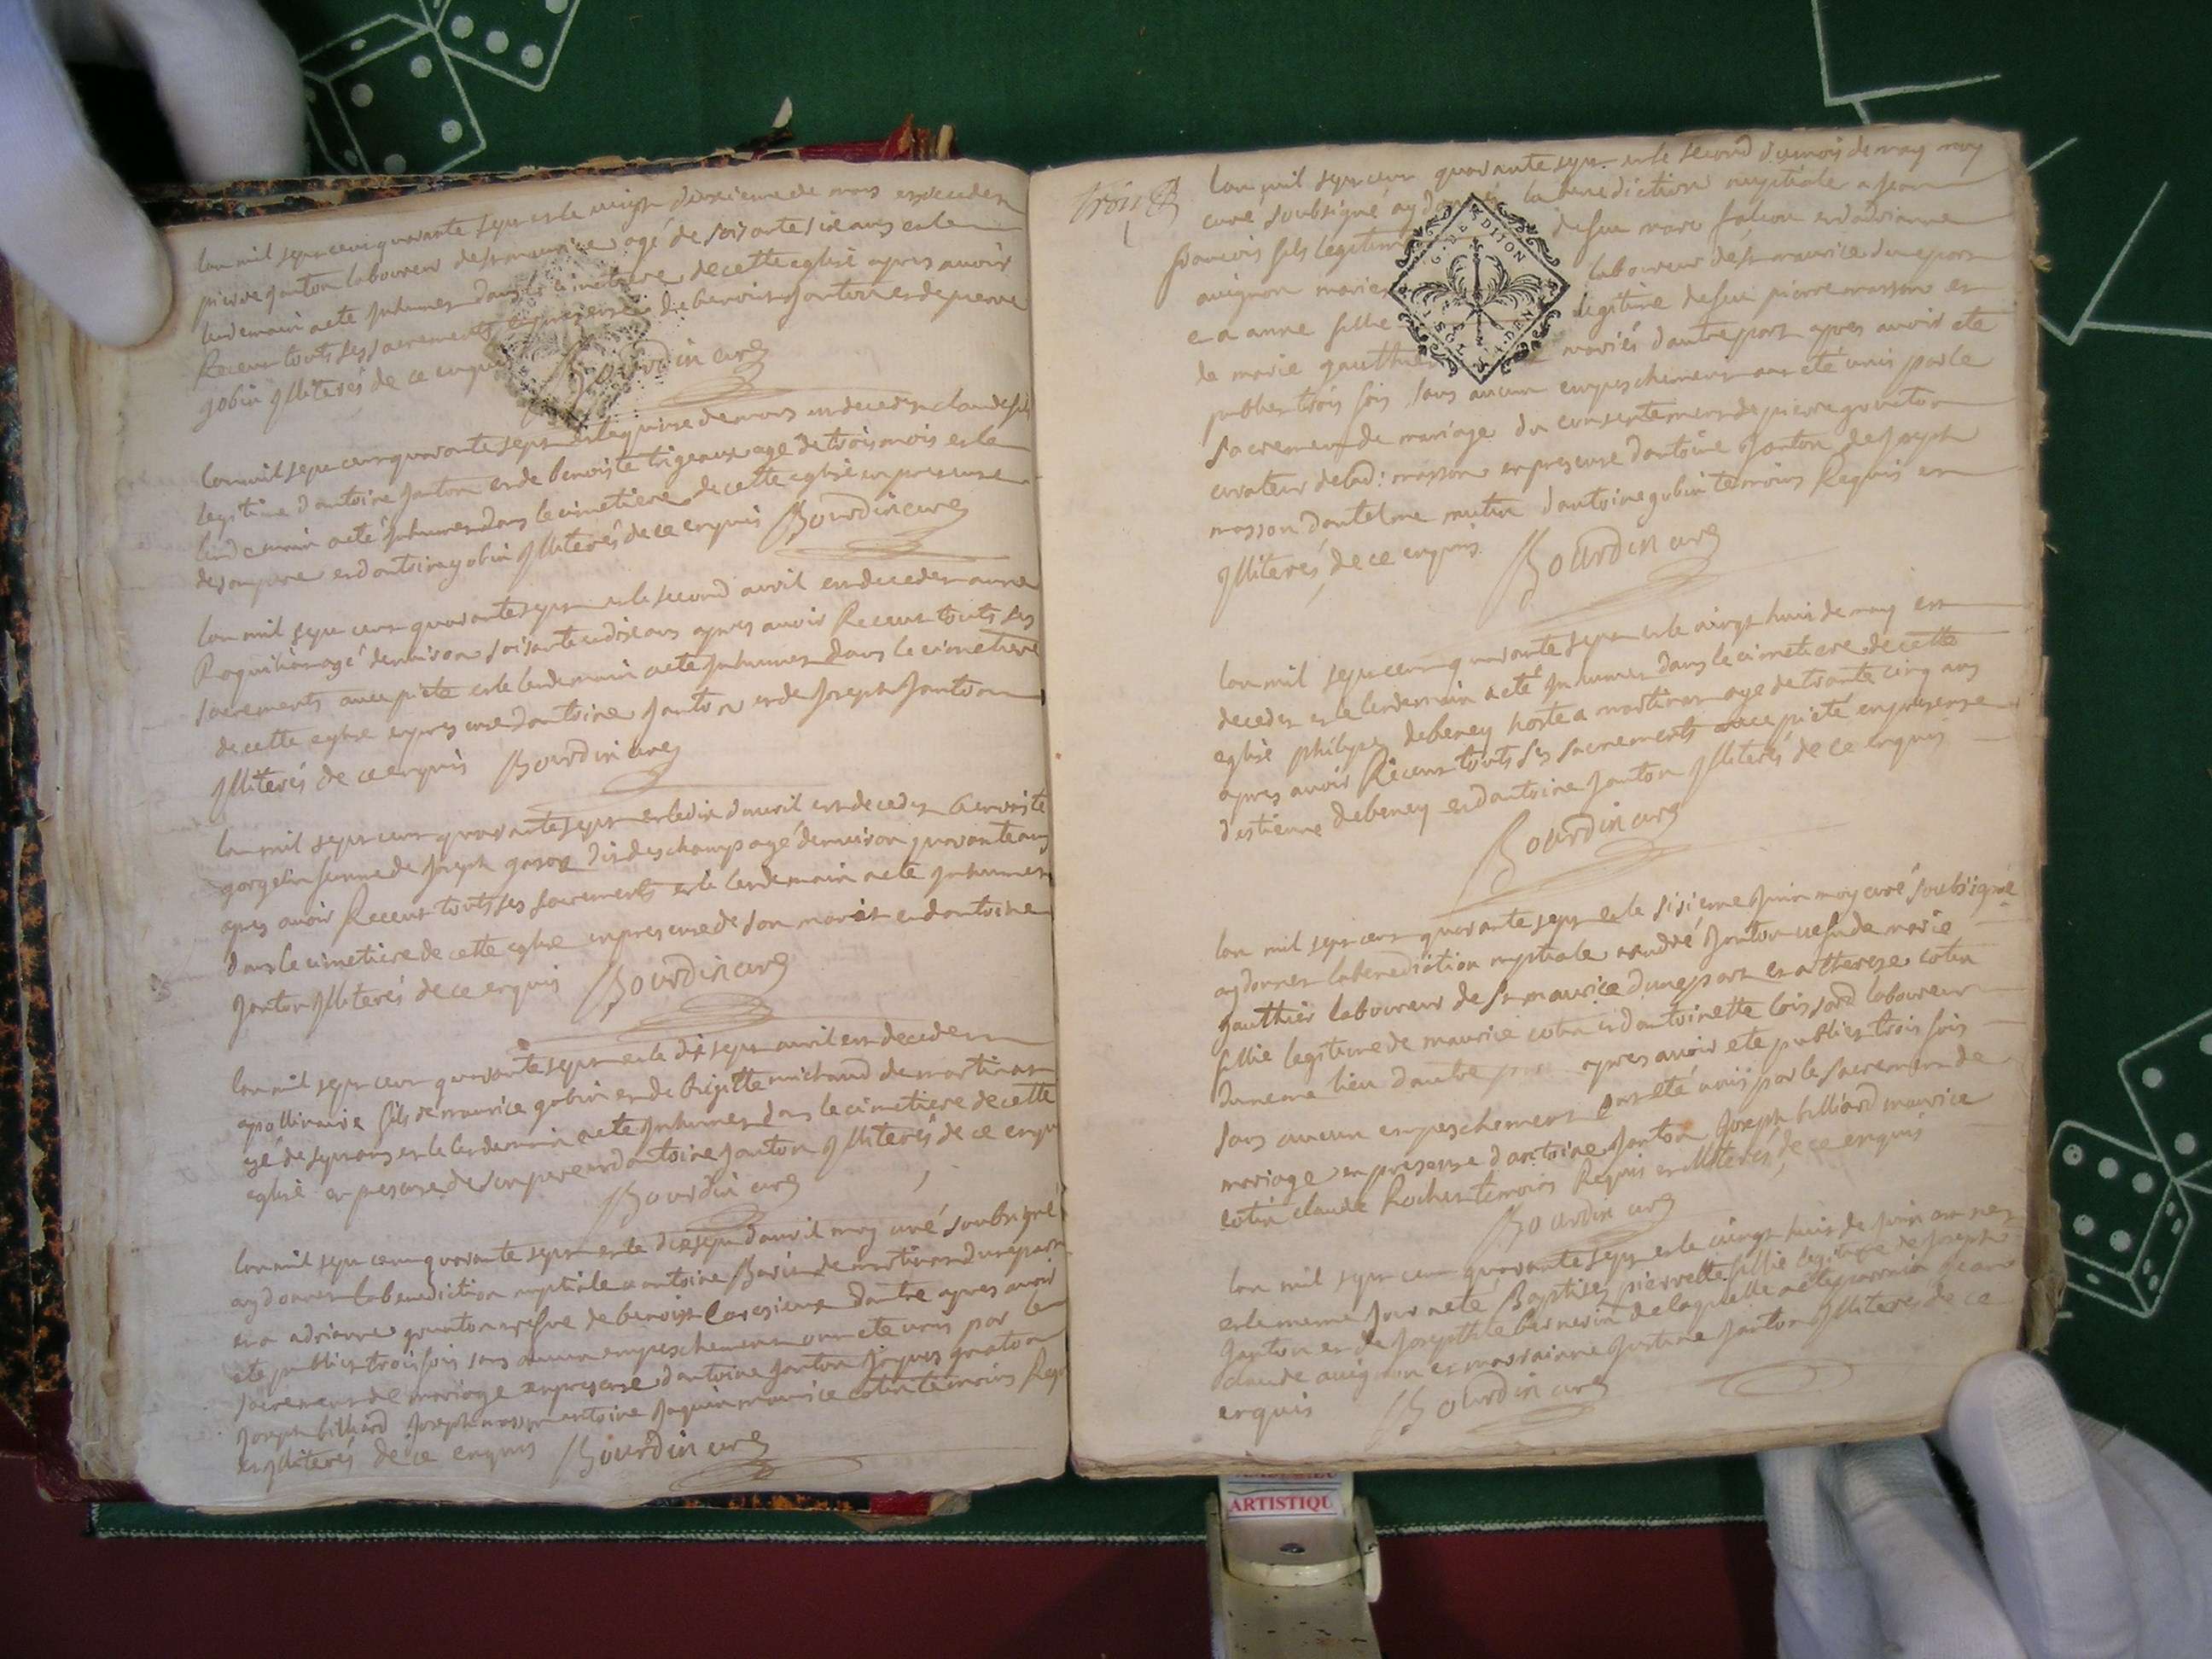 lan mil sept cent quarante sept et le vingt deuxieme de mars est decedez
pierre janton laboureur de st maurice agé de soixante six ans et le
lendemain a eté inhumez dans le cimetiere de cette eglise apres avoir
Receut touts ses sacrements en presence de benoist janton et de pierre
gobin illiterés de ce enquis Bourdin curé
lan mil sept cent quarante sept et le quinze de mars est decedez claude fils
legitime dantoine janton et de benoiste agé de trois mois et le
lendemain a eté inhumez dans le cimetiere de cette eglise en presence
de son pere et dantoine gobin illiterés de ce enquis Bourdin curé
lan mil sept cent quarante sept et le second avril est decedez anne
agé denviron soisante et dix ans apres avoir Receut touts ses
sacrements avec pieté et le lendemain a eté inhumez dans le cimetiere
de cette eglise en presence dantoine janton et de joseph janton
illiterés de ce enquis Bourdin curé
lan mil sept cent quarante sept et le dix davril est decedez benoiste
gorgelin femme de joseph dit deschamps agé denviron quarante ans
apres avoir Receut touts ses sacrements et le lendemain a eté inhumez
dans le cimetiere de cette eglise en presence de son marit et dantoine
janton illiterés de ce enquis Bourdin curé
lan mil sept cent quarante sept et le dix sept avril est decedez
apollinaire fils de maurice gobin et de brigitte michaud de martinat
agé de sept ans et le lendemain a eté inhumez dans le cimetiere de cette
eglise en presence de son pere et dantoine janton illiterés de ce enquis
Bourdin curé
lan mil sept cent quarante sept et le dixsept davril moy curé soubsigné
ay donnez la benediction nuptiale a antoine de martinat dune part
et a adrianne veufve de benoist dautre apres avoir
eté publiez trois fois sans aucun empeschement ont eté unis par le
sacrement de mariage en presence dantoine janton
joseph billiard joseph masson antoine jaquin maurice cotin temoins Requis
et illiterés de ce enquis Bourdin curé
trois
lan mil sept cent quarante sept et le second du mois de may moy
curé soubsigné ay donnéz la benediction nuptiale a jean
francois fils legitime de feu marc falcon et dadrianne
avignon mariez laboureur de st maurice dune part
et a anne fillie legitime de feu pierre masson et
de marie gauthier mariés dautre part apres avoir eté
publiez trois fois sans aucun empeschement ont eté unis par le
sacrement de mariage du consentement de pierre
curateur de lad: masson en presence dantoine janton de joseph
masson dantelme mutin dantoine gobin temoins Requis et
illiterés de ce enquis Bourdin curé
G. DE DIJON
DEN
SOLS
lan mil sept cent quarante sept et le vingt huit de may est
decedez et le lendemain a eté inhumez dans le cimetiere de cette
eglise philipe debeney hoste a martinat agé de trante cinq ans
apres avoir Receut touts ses sacrements avec pieté en presence
destienne debeney et dantoine janton illiterés de ce enquis
Bourdin curé
lan mil sept cent quarante sept et le sisieme juin moy curé soubsigné
ay donnez la benediction nuptiale a andré janton vefu de marie
gauthier laboureur de st maurice dune part et a therese cotin
fillie legitime de maurice cotin et dantoinette loissard laboureur
du meme lieu dautre part apres avoir eté publiez trois fois
sans aucun empeschement ont eté unis par le sacrement de
mariage en presence dantoine janton joseph billiard maurice
cotin claude Rochet temoins Requis et illiterés de ce enquis
Bourdin curé
lan mil sept cent quarante sept et le vingt huit de juin est nez
et le meme jour a eté Baptisez pierrette fillie legitime de joseph
janton et de josepthe bernerin de laquelle a eté parrain jean
claude avignon et marrainne justine janton illiterés de ce
enquis Bourdin curé
ARTISTIQU